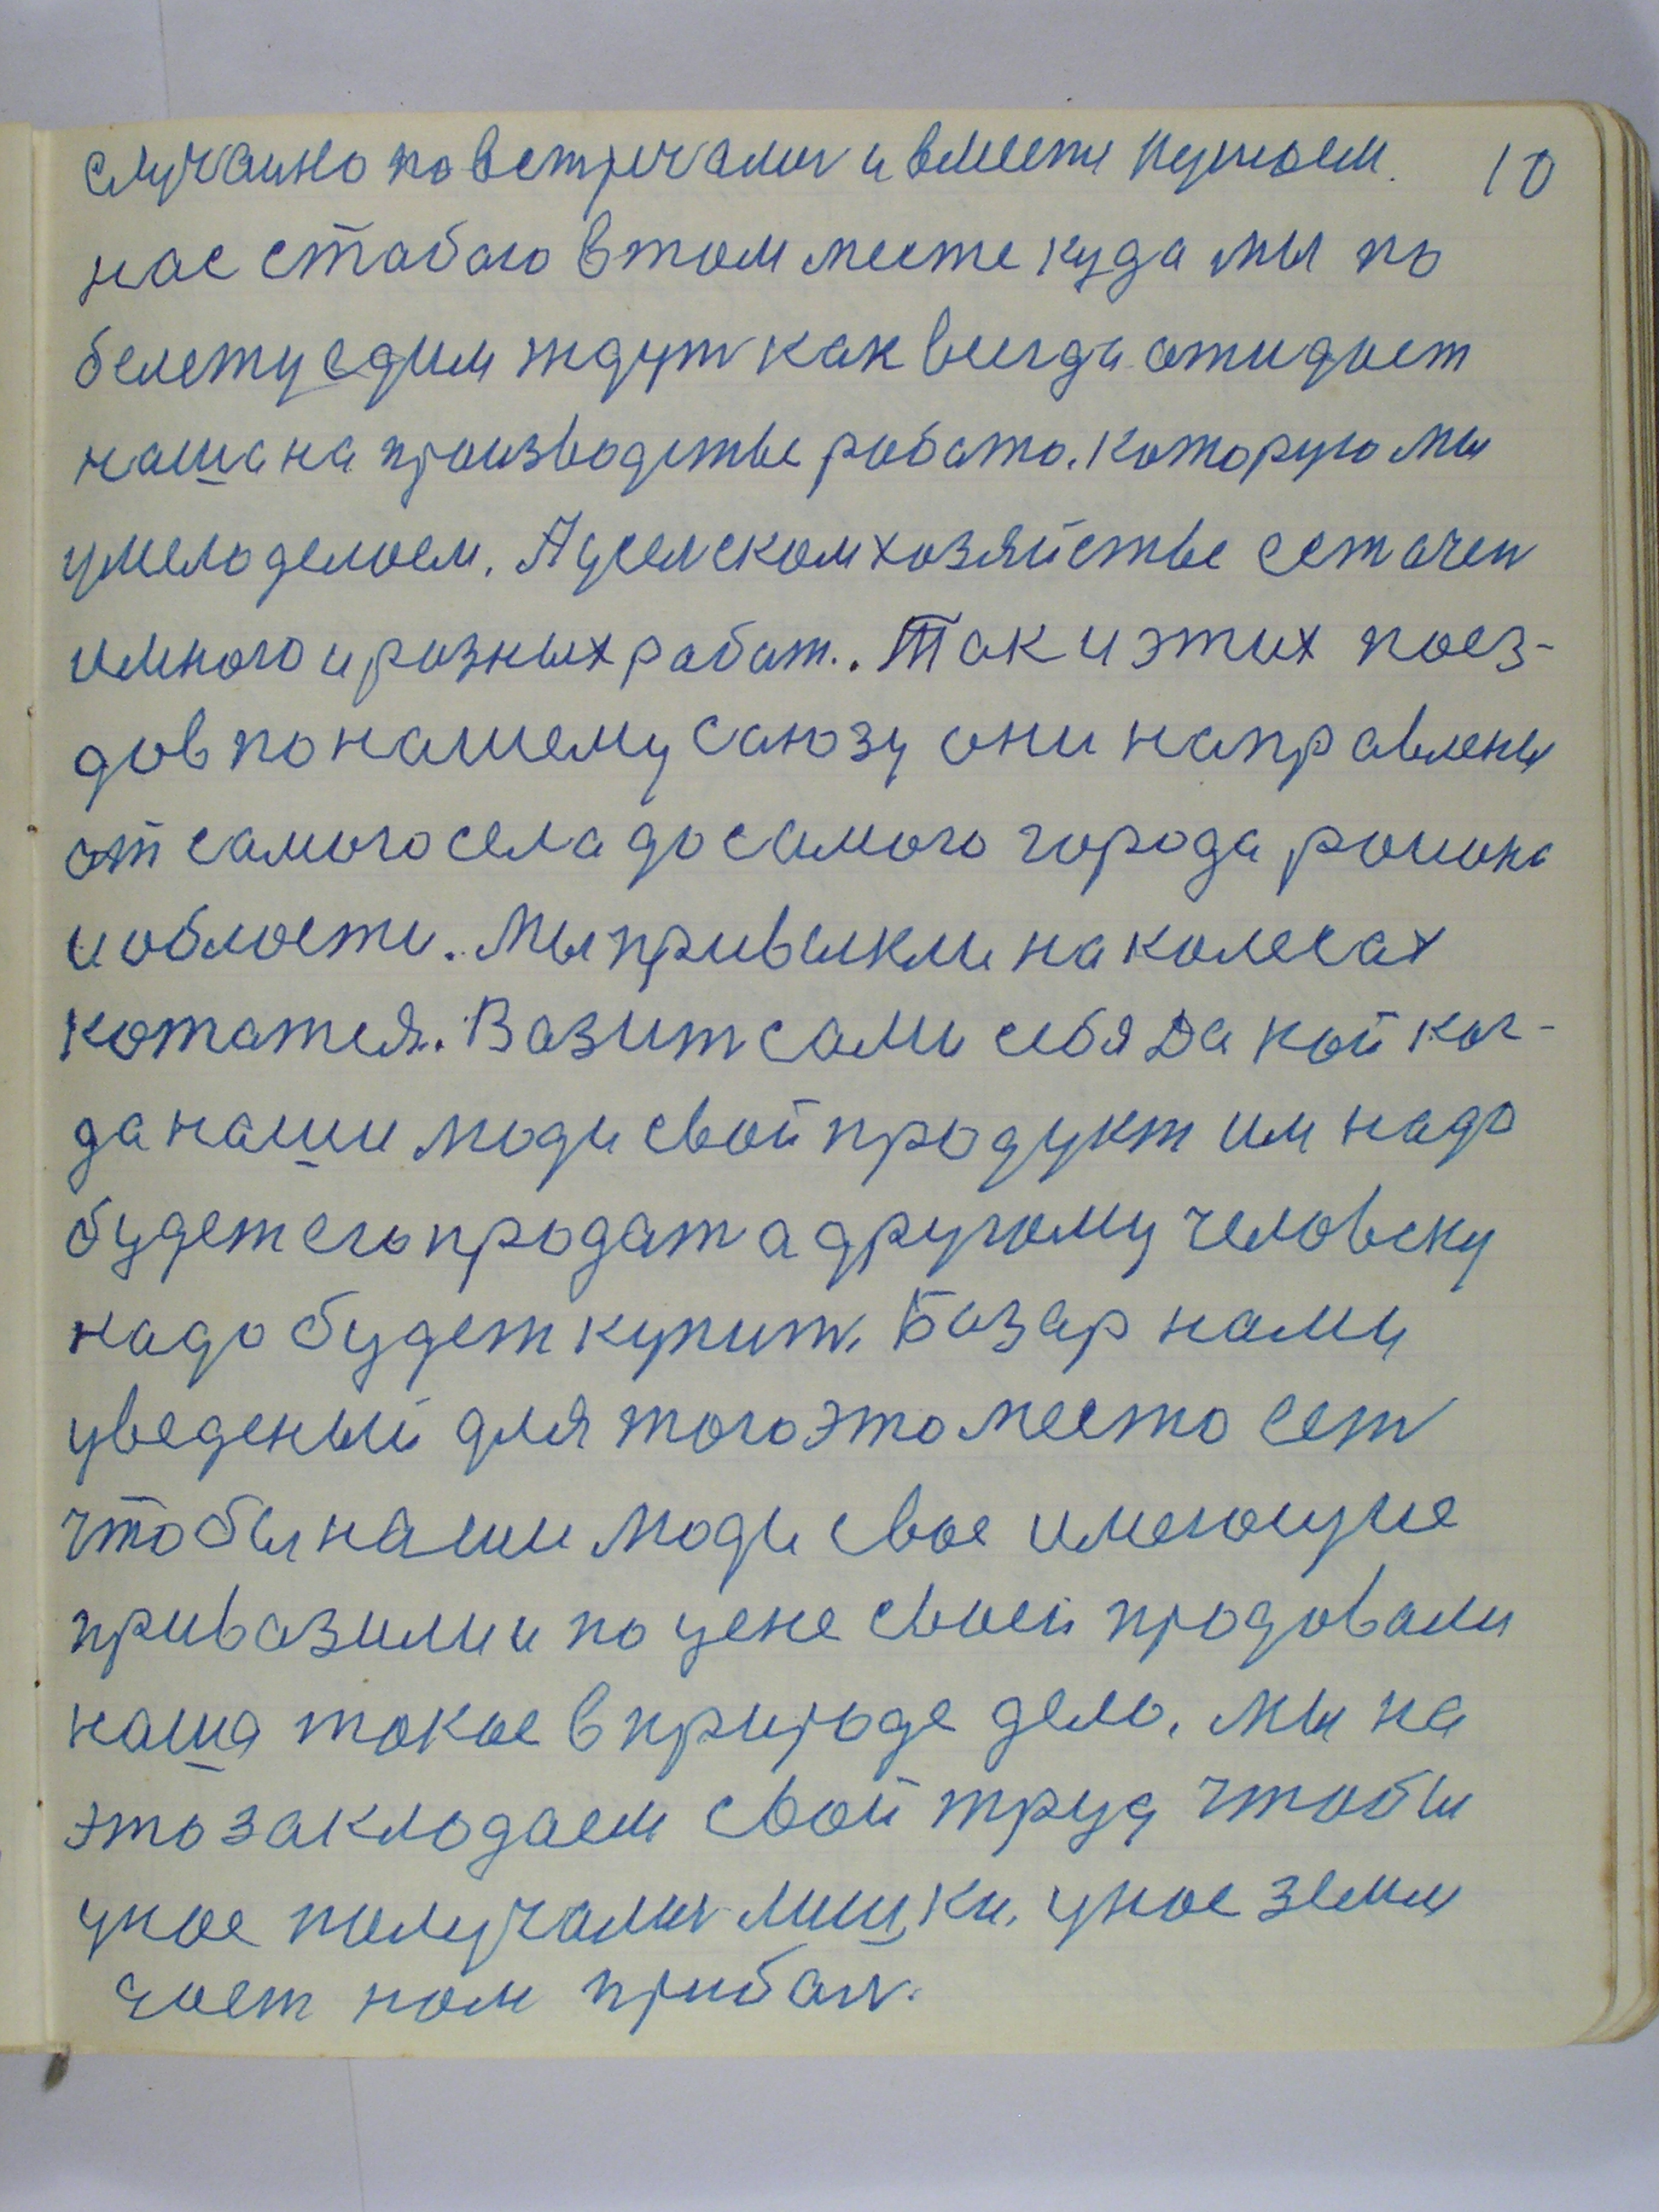 случаино повстричались и вместе кушаем. 10
нас стобою втом месте куда мы по
белету едим ждут как всегда ожидает
наша на производстве робота. которую мы
умело делоем. А уселском хозяйстве ест очен
имного и розных работ.. Так и этих поез-
дов по нашему Саюзу они направлены
от самого села до самого города роиона
и области. Мы привыкли на колесах
кототся. Возит сами себя да кой ког-
да наши люди свой продукт им надо
будет его продат а другому человеку
надо будет купит. Базар нами
уведеный для того это место ест
чтобы наши люди свое имеющие
привозили и по цене своей продовали
наша токое в природе дело. мы на
это заклодаем свой труд чтобы
унас получалис мишки. унас земля
даст ном прибал.